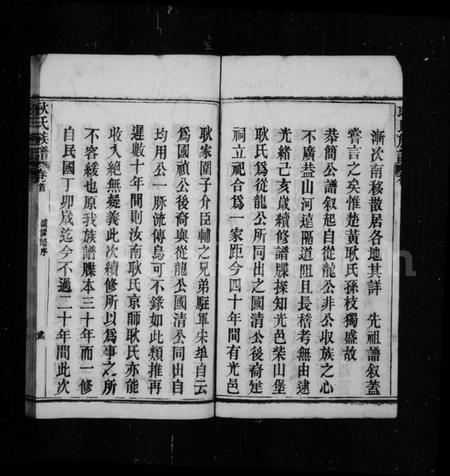 漸次南移散居各地其詳　先祖譜叙蓋
嘗言之矣惟楚黃耿氏孫枝獨盛故
恭簡公譜叙起自從龍公非公取族之心
不廣益山河遠隔道阻且長稽考無由逮
光緒己亥歲續修譜牒探知光邑柴山堡
耿氏為從龍公所同出之國清公後裔建
祠立祀合為一家距今四十年間有光邑
耿家園子介臣輔之兄弟駐軍宋埠自云
為國禎公後裔與從龍公國清公同出自
均用公一脈流傳烏可不錄如此類推再
遲數十年間則汝南耿氏京師耿氏亦能
收入絕無疑義此次續修所以為事之所
不容緩也原我族譜牒本三十年而一修
自民國丁卯歲迄今不過二十年間此次
耿氏族譜 卷首